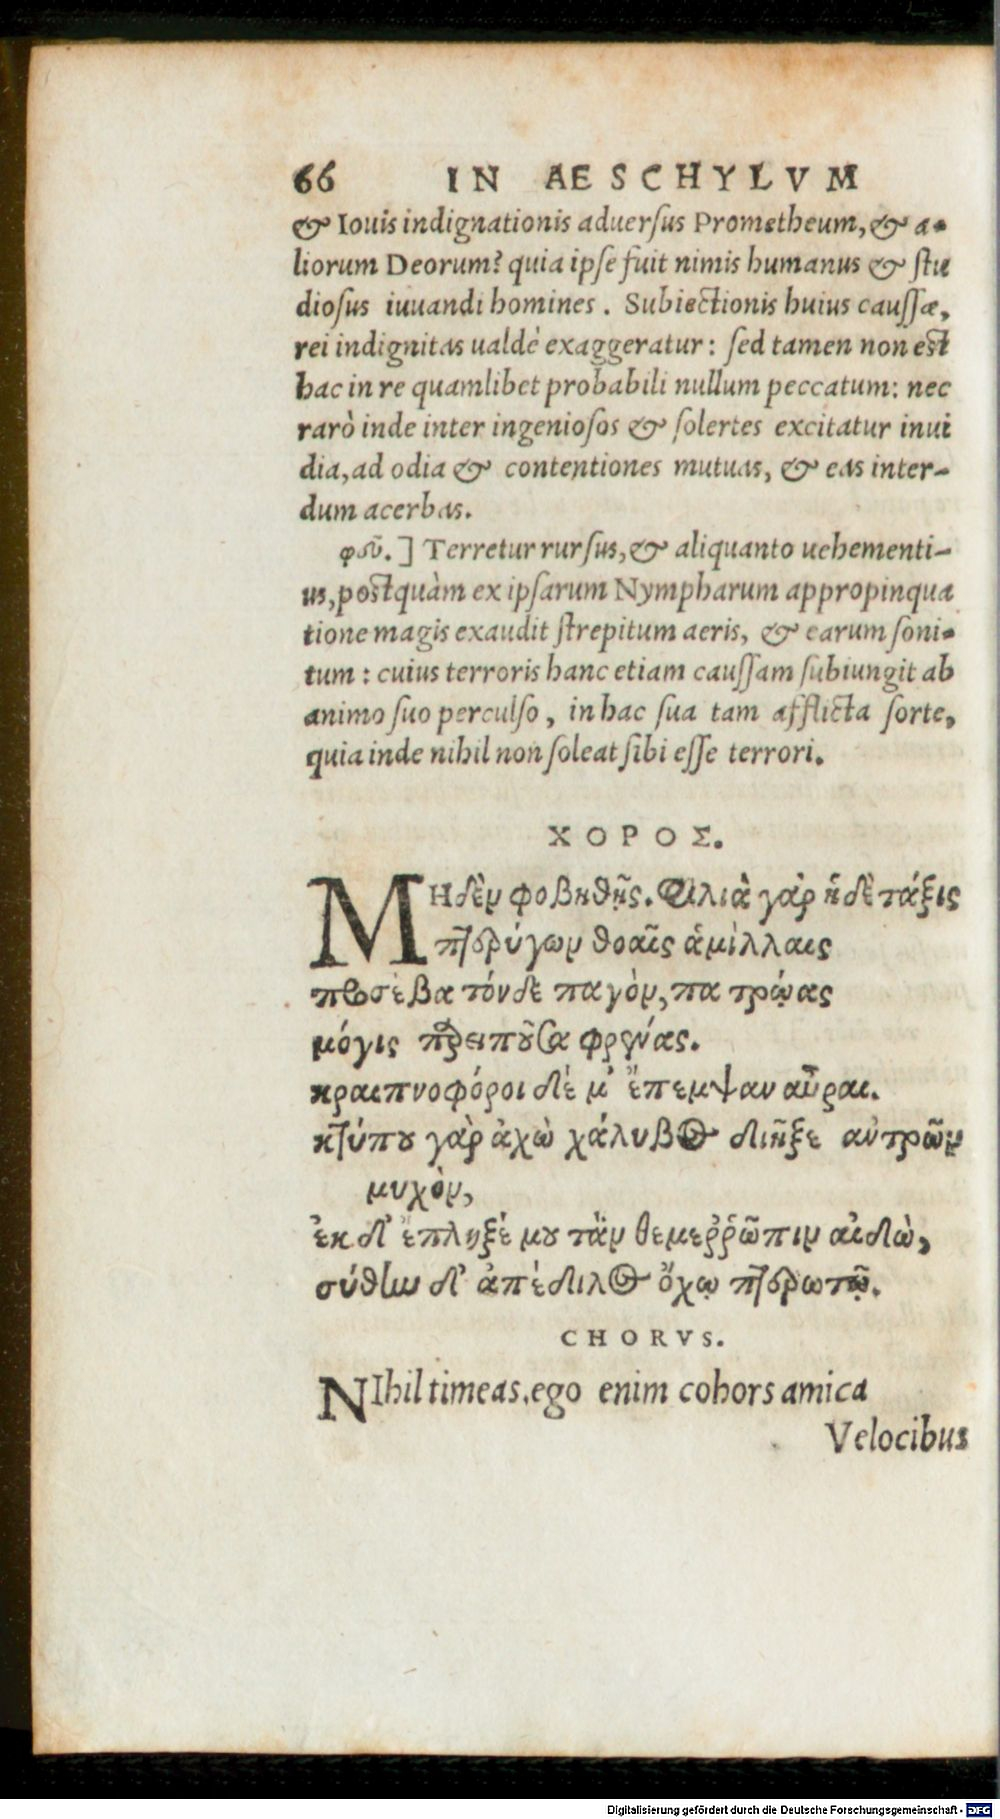 66 IN AESCHYLVM
& Iouis indignationis aduersus Prometheum, & a-
liorum Deorum? quia ipse fuit nimis humanus & stu
diosus iuuandi homines. Subiectionis huius caussæ,
rei indignitas ualdè exaggeratur: sed tamen non est
hac in re quamlibet probabili nullum peccatum: nec
rarò inde inter ingeniosos & solertes excitatur inui
dia, ad odia & contentiones mutuas, & eas inter-
dum acerbas.
φεῦ.] Terretur rursus, & aliquanto uehementi-
us, postquàm ex ipsarum Nympharum appropinqua
tione magis exaudit strepitum aeris, & earum soni-
tum: cuius terroris hanc etiam caussam subiungit ab
animo suo perculso, in hac sua tam afflicta sorte,
quia inde nihil non soleat sibi esse terrori.
ΧΟΡΟΣ.
ΜΗδὲν φοβηθῇς. Φιλιὰ γὰρ ἥδε τάξις
πτερύγων θοαῖς ἁμίλλαις
προσέβα τόνδε παγὸν, πατρῴας
μόγις παρειποῦσα φρένας.
κραιπνοφόροι δέ μ' ἔπεμψαν αὖραι.
κτύπου γὰρ ἀχὼ χάλυβος διῆξε αὐτρῶν
μυχὸν,
ἐκ δ' ἔπληξέ μου τὰν θεμερῥῶπιν αἰδὼ,
σύθην δ' ἀπέδιλος ὄχῳ πτερωτῷ.
CHORVS.
NIhil timeas, ego enim cohors amica
Velocibus
Digitalisierung gefördert durch die Deutsche Forschungsgemeinschaft - DFG